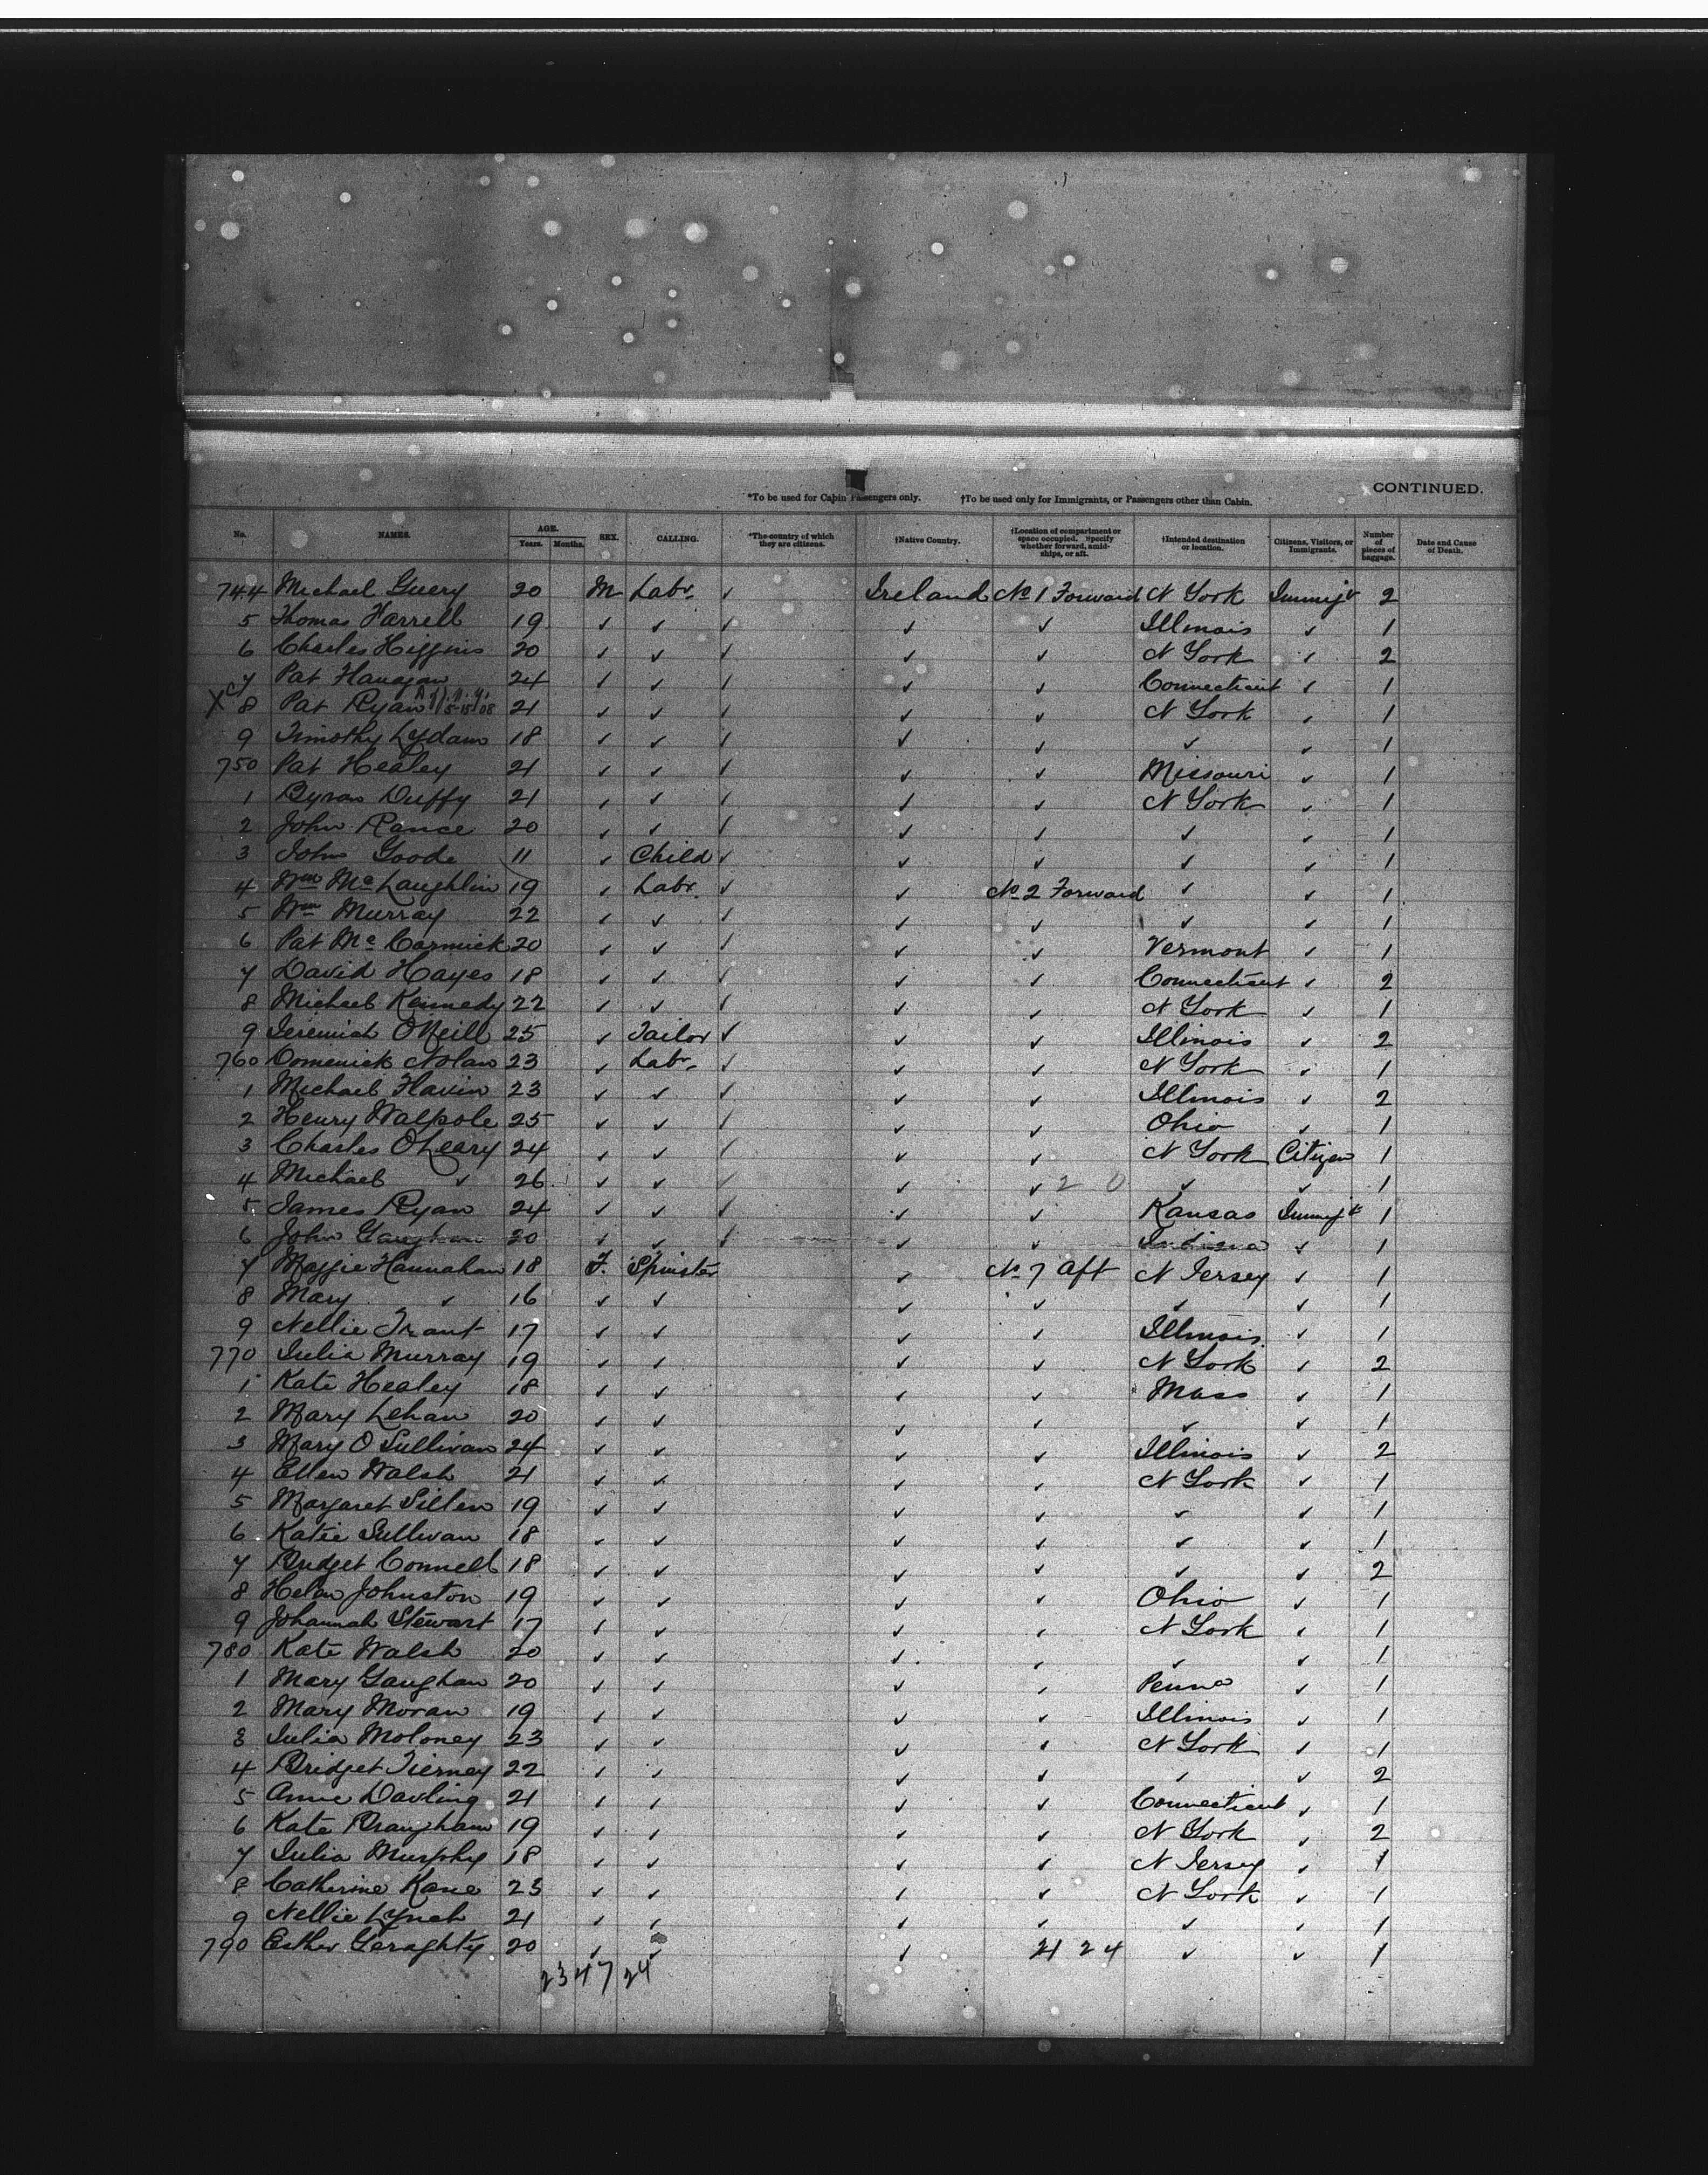 CONTINUED.
*To be used for Cabin Passengers only. †To be used only for Immigrants, or Passengers other than Cabin.
No. NAMES. AGE. Years. Months. SEX. CALLING. *The country of which they are citizens. †Native Country. †Location of compartment or space occupied. Specify whether forward, amidships, or aft. †Intended destination or location. Citizens, Visitors, or Immigrants. Number of pieces of baggage. Date and Cause of Death.
744 Michael Guery 20 M Labr. ✓ Ireland No 1 Forward N York Immigt 2
5 Thomas Farrell 19 ✓ ✓ ✓ ✓ ✓ Illinois ✓ 1
6 Charles Higgins 20 ✓ ✓ ✓ ✓ ✓ N York ✓ 2
7 Pat Flanagan 24 ✓ ✓ ✓ ✓ ✓ Connecticut ✓ 1
X 8 Pat Ryan 5-15/08 21 ✓ ✓ ✓ ✓ ✓ N York ✓ 1
9 Timothy Lydam 18 ✓ ✓ ✓ ✓ ✓ ✓ ✓ 1
750 Pat Healey 21 ✓ ✓ ✓ ✓ ✓ Missouri ✓ 1
1 Byran Duffy 21 ✓ ✓ ✓ ✓ ✓ N York ✓ 1
2 John Rance 20 ✓ ✓ ✓ ✓ ✓ ✓ ✓ 1
3 John Goode 11 ✓ Child ✓ ✓ ✓ ✓ ✓ 1
4 Wm McLaughlin 19 ✓ Labr. ✓ ✓ No 2 Forward ✓ ✓ 1
5 Wm Murray 22 ✓ ✓ ✓ ✓ ✓ ✓ ✓ 1
6 Pat McCormick 20 ✓ ✓ ✓ ✓ ✓ Vermont ✓ 1
7 David Hayes 18 ✓ ✓ ✓ ✓ ✓ Connecticut ✓ 2
8 Michael Kennedy 22 ✓ ✓ ✓ ✓ ✓ N York ✓ 1
9 Jeremiah O'Neill 25 ✓ Tailor ✓ ✓ ✓ Illinois ✓ 2
760 Domenick Nolan 23 ✓ Labr. ✓ ✓ ✓ N York ✓ 1
1 Michael Flavin 23 ✓ ✓ ✓ ✓ ✓ Illinois ✓ 2
2 Henry Walpole 25 ✓ ✓ ✓ ✓ ✓ Ohio ✓ 1
3 Charles OLeary 24 ✓ ✓ ✓ ✓ ✓ N York Citizen 1
4 Michael ✓ 26 ✓ ✓ ✓ ✓ ✓ 2 0 ✓ ✓ 1
5 James Ryan 24 ✓ ✓ ✓ ✓ ✓ Kansas Immigt 1
6 John Gaughan 20 ✓ ✓ ✓ ✓ ✓ Indiana ✓ 1
7 Maggie Hannahan 18 F. Spinster ✓ No 7 Aft N Jersey ✓ 1
8 Mary ✓ 16 ✓ ✓ ✓ ✓ ✓ ✓ 1
9 Nellie Trant 17 ✓ ✓ ✓ ✓ Illinois ✓ 1
770 Julia Murray 19 ✓ ✓ ✓ ✓ N York ✓ 2
1 Kate Healey 18 ✓ ✓ ✓ ✓ Mass ✓ 1
2 Mary Lehan 20 ✓ ✓ ✓ ✓ ✓ ✓ 1
3 Mary O Sullivan 24 ✓ ✓ ✓ ✓ Illinois ✓ 2
4 Ellen Walsh 21 ✓ ✓ ✓ ✓ N York ✓ 1
5 Margaret Sillen 19 ✓ ✓ ✓ ✓ ✓ ✓ 1
6 Katie Sullivan 18 ✓ ✓ ✓ ✓ ✓ ✓ 1
7 Bridget Connell 18 ✓ ✓ ✓ ✓ ✓ ✓ 2
8 Helen Johnston 19 ✓ ✓ ✓ ✓ Ohio ✓ 1
9 Johannah Stewart 17 ✓ ✓ ✓ ✓ N York ✓ 1
780 Kate Walsh 20 ✓ ✓ ✓ ✓ ✓ ✓ 1
1 Mary Gaughan 20 ✓ ✓ ✓ ✓ Penna ✓ 1
2 Mary Moran 19 ✓ ✓ ✓ ✓ Illinois ✓ 1
3 Julia Moloney 23 ✓ ✓ ✓ ✓ N York ✓ 1
4 Bridget Tierney 22 ✓ ✓ ✓ ✓ ✓ ✓ 2
5 Annie Darling 21 ✓ ✓ ✓ ✓ Connecticut ✓ 1
6 Kate Braugham 19 ✓ ✓ ✓ ✓ N York ✓ 2
7 Julia Murphy 18 ✓ ✓ ✓ ✓ N Jersey ✓ 1
8 Catherine Kane 23 ✓ ✓ ✓ ✓ N York ✓ 1
9 Nellie Lynch 21 ✓ ✓ ✓ ✓ ✓ ✓ 1
790 Esther Geraghty 20 ✓ ✓ ✓ 21 24 ✓ ✓ 1
23 47 24